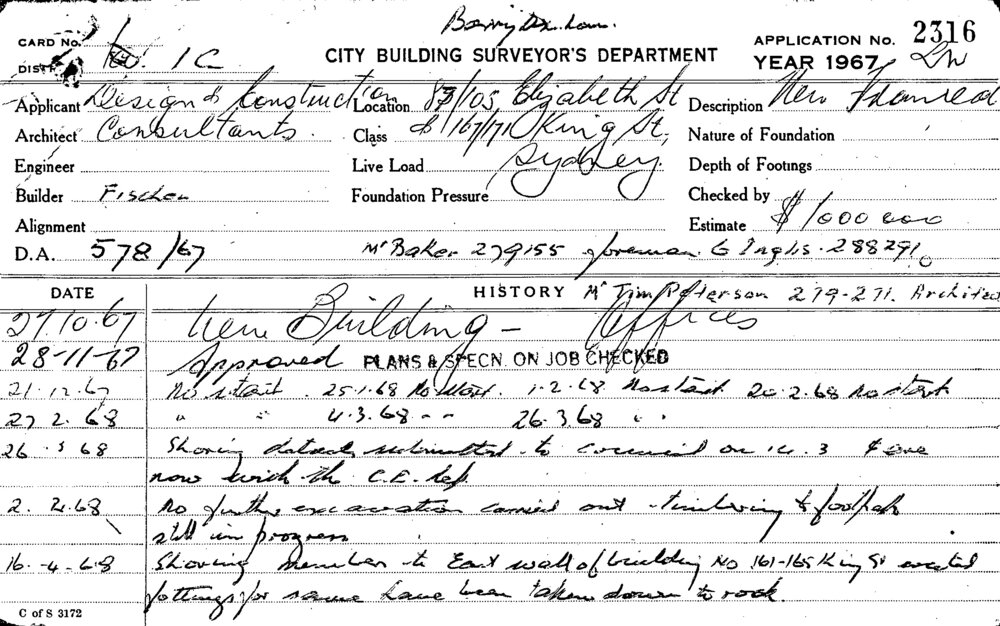 CARD No.
CITY BUILDING SURVEYOR'S DEPARTMENT
APPLICATION No. 2316
DISTR. 1C
YEAR 1967
Applicant Design & Construction Location 83/105 Elizabeth St Description New
Architect Consultants. Class & 167/171 King St, Nature of Foundation
Engineer Live Load Sydney. Depth of Footings
Builder Fischer Foundation Pressure Checked by
Alignment Estimate $1000 000
D.A. 578/67 Mr Baker 279155 foreman G Inglis. 288291
DATE HISTORY Mr Tim Peterson 279-271. Architect
27.10.67 New Building - Offices
28-11-67 Approved PLANS & SPECN. ON JOB CHECKED
21.12.67 No start. 25.1.68 No start. 1.2.68 No start 20.2.68 No start
27 2. 68 " " 4.3.68 " " 26.3.68 " "
26.3 68 Shoring details submitted to council on 14.3 & are
now with the C.E. dep.
2. 4.68 No further excavation carried out - timbering to footpath
still in progress
16.-4-68 Shoring member to East wall of building No 161-165 King St erected
footings for same have been taken down to rock.
C of S 3172